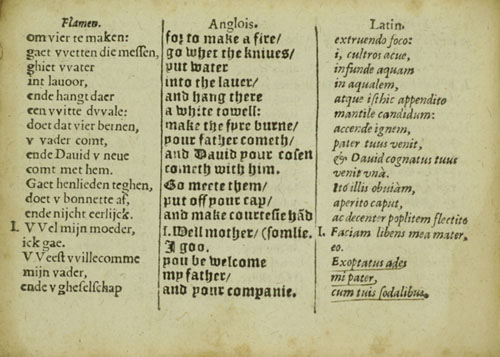 Flamen.
om vier te maken:
gaet vvetten die messen,
ghiet vvater
int lauoor,
ende hangt daer
een vvitte dvvale:
doet dat vier bernen,
v vader comt,
ende Dauid v neue
comt met hem.
Gaet henlieden teghen,
doet v bonnette af,
ende nijcht eerlijck.
I. VVel mijn moeder,
ick gae.
VVeest vvillecomme
mijn vader,
ende v gheselschap
Anglois.
for to make a fire/
go whet the knives/
put water
into the lauer/
and hang there
a white towell:
make the fyre burne/
your father cometh/
and Dauid your cosen
cometh with him.
Go meete them/
put off your cap/
and make courtesie hãd
I. Well mother/ (somlie.
I goo.
you be welcome
my father/
and your companie.
Latin.
extruendo foco:
i, cultros acue,
infunde aquam
in aqualem,
atque isthic appendito
mantile candidum:
accende ignem,
pater tuus venit,
& Dauid cognatus tuus
venit vnà.
Ito illis obuiàm,
aperito caput,
ac decenter poplitem flectito
I. Faciam libens mea mater,
eo.
Exoptatus ades
mi pater,
cum tuis sodalibus.